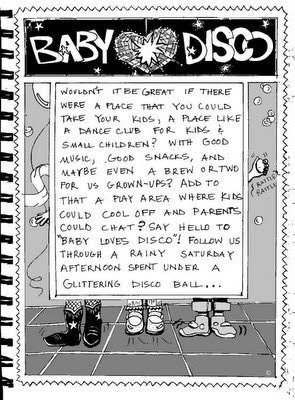 BABY DISCO
WOULDN'T IT BE GREAT IF THERE
WERE A PLACE THAT YOU COULD
TAKE YOUR KIDS, A PLACE LIKE
A DANCE CLUB FOR KIDS &
SMALL CHILDREN? WITH GOOD
MUSIC, GOOD SNACKS, AND
MAYBE EVEN A BREW OR TWO
FOR US GROWN-UPS? ADD TO
THAT A PLAY AREA WHERE KIDS
COULD COOL OFF AND PARENTS
COULD CHAT? SAY HELLO TO
"BABY LOVES DISCO"! FOLLOW US
THROUGH A RAINY SATURDAY
AFTERNOON SPENT UNDER A
GLITTERING DISCO BALL...
RATTLE
RATTLE
©